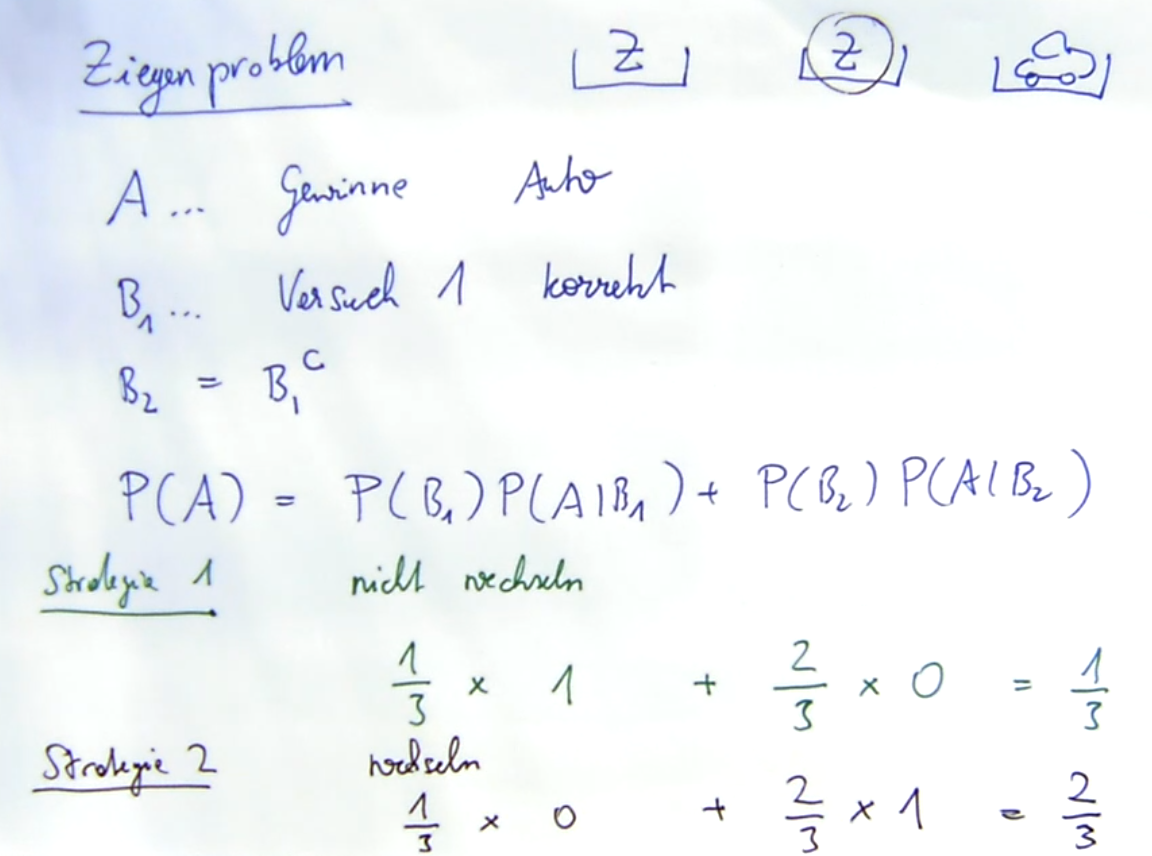 Ziegenproblem Z Z
A ... Gewinne Auto
B₁ ... Versuch 1 korrekt
B₂ = B₁ᶜ
P(A) = P(B₁) P(A|B₁) + P(B₂) P(A|B₂)
Strategie 1 nicht wechseln
1/3 × 1 + 2/3 × 0 = 1/3
Strategie 2 wechseln
1/3 × 0 + 2/3 × 1 = 2/3